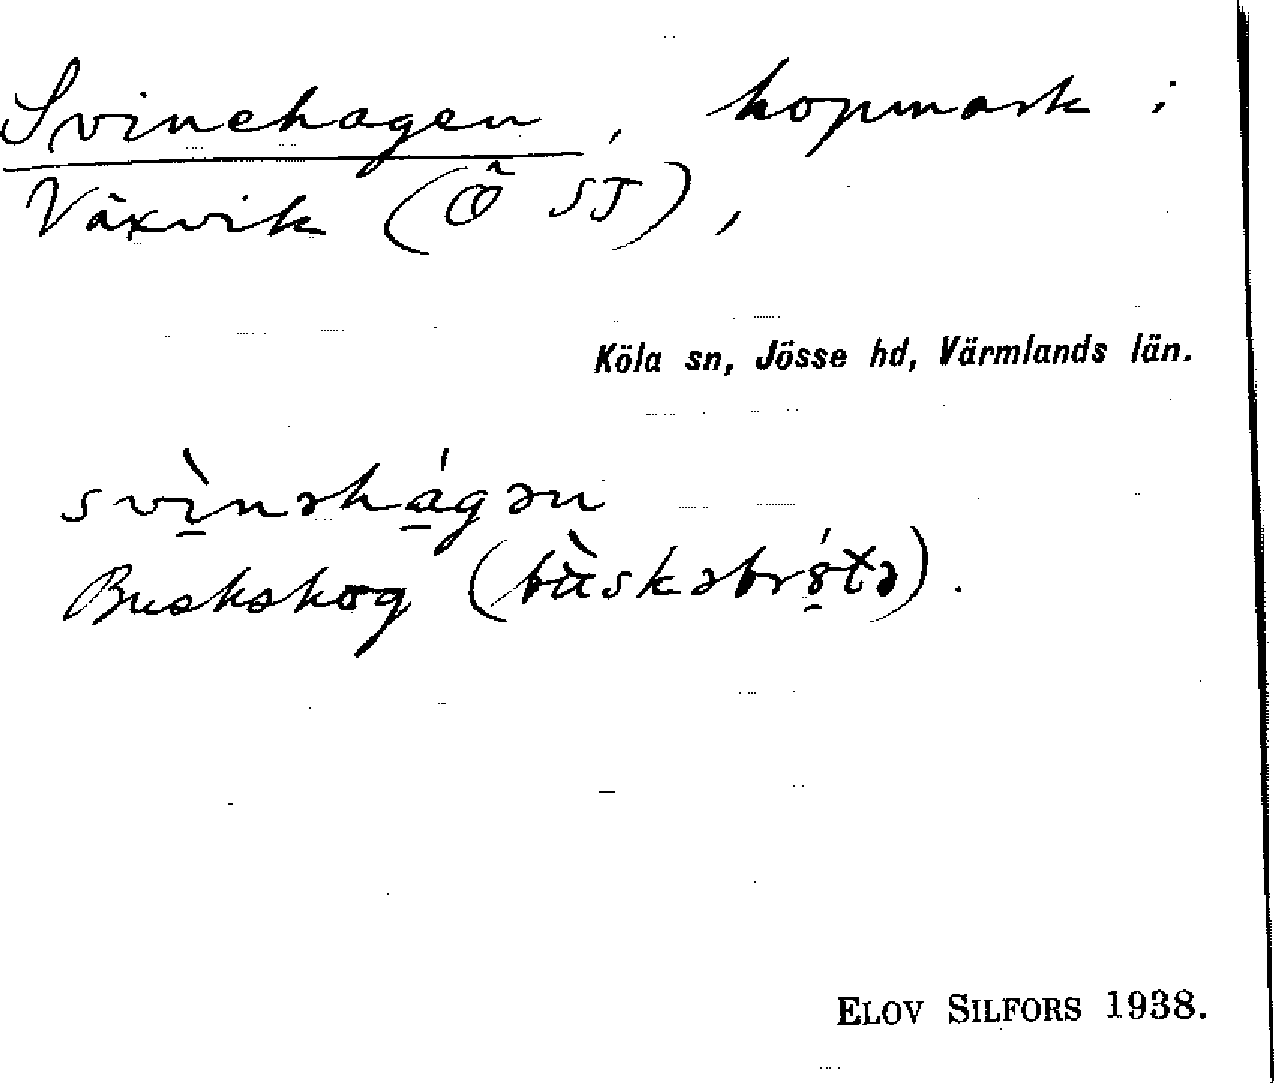 Svinehagen, hopmark i
Växvik (Ö ST),
Köla sn, Jösse hd, Värmlands län.
svìnəhágən
Buskskog (bùskəbrótə).
ELOV SILFORS 1938.